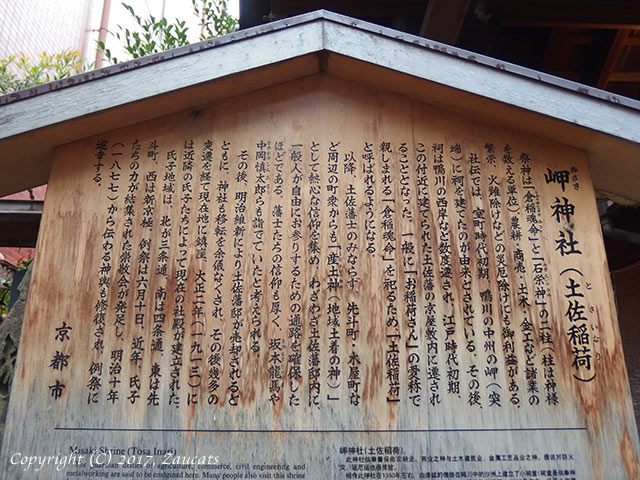 岬神社(土佐稲荷)
みさき
とさいなり
祭神は、「倉稲魂命」と「石栄神」の二社(社は神様
を数える単位)。農耕、商売、土木、金工など諸業の
繁栄、火難除けなどの災厄除けにも御利益がある。
社伝では、室町時代初期、鴨川の中州の岬(突
端)に祠を建てたのが由来とされている。その後、
祠は鴨川の西岸など数度遷され、江戸時代初期、
この付近に建てられた土佐藩の京屋敷内に遷され
ることとなった。一般に「お稲荷さん」の愛称で
親しまれる「倉稲魂命」を祀るため、「土佐稲荷」
と呼ばれるようになる。
以降、土佐藩士のみならず、先斗町・木屋町な
ど周辺の町衆からも「産土神(地域土着の神)」
として熱心な信仰を集め、わざわざ土佐藩邸内に
一般人が自由にお参りするための通路を確保した
ほどである。藩士たちの信仰も厚く、坂本龍馬や
中岡慎太郎らも詣でていたと考えられる。
その後、明治維新により土佐藩邸が売却されると
ともに、神社も移転を余儀なくされ、その後幾多の
変遷を経て現在地に鎮座、大正二年(一九一三)に
は近隣の氏子たちによって現在の社殿が建立された。
氏子地域は、北が三条通、南は四条通、東は先
斗町、西は新京極。例祭は六月十日。近年、氏子
たちの力が結集された崇敬会が発足し、明治十年
(一八七七)から伝わる神輿も修復され、例祭に
遊幸する。
京都市
Misaki Shrine (Tosa Inari)
guardian deities of agriculture, commerce, civil engineering and
metalworking are said to be enshrined here. Many people also visit this shrine
岬神社(土佐稲荷)
Copyright (C) 2017, Zaucats